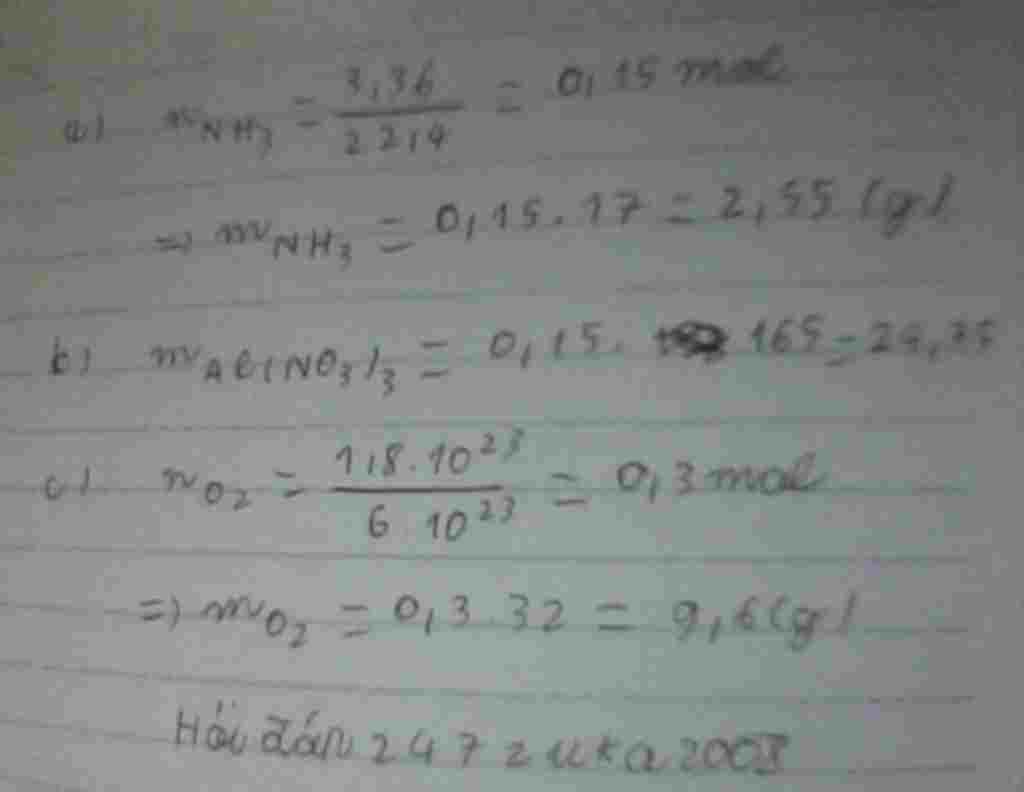 a) nNH3 = 3,36 / 22,4 = 0,15 mol
=> mNH3 = 0,15.17 = 2,55 (g)
b) mAl(NO3)3 = 0,15. 165 = 24,75
c) nO2 = 1,8.10^23 / 6 10^23 = 0,3 mol
=> mO2 = 0,3.32 = 9,6(g)
Hỏi đán 247 zuka2003